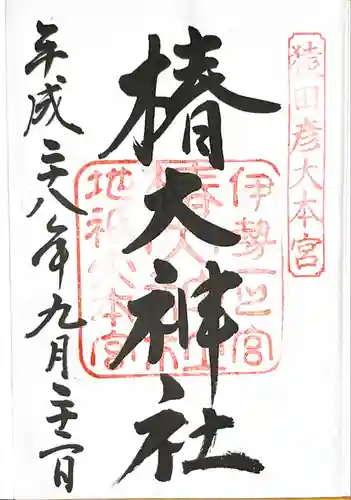 猿田彦大本宮
伊勢一之宮
椿大神社
地祇大本宮
椿大神社
平成二十八年九月二十二日